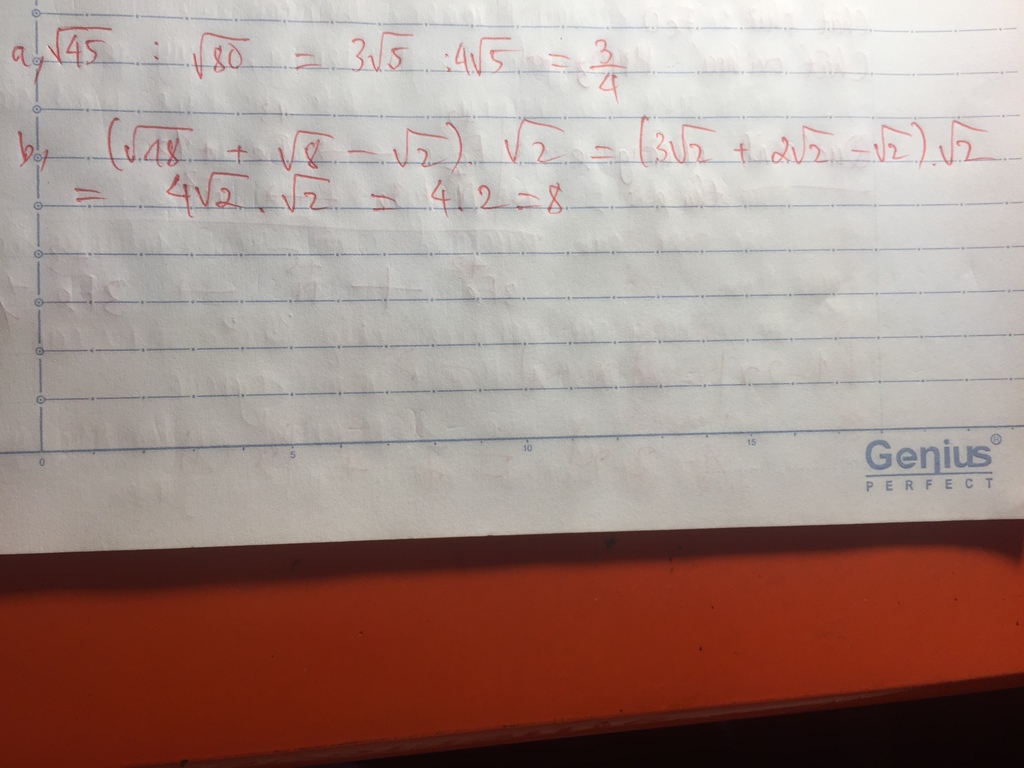 a, √45 : √80 = 3√5 : 4√5 = 3/4
b, (√18 + √8 - √2) . √2 = (3√2 + 2√2 - √2) . √2
= 4√2 . √2 = 4 . 2 = 8
0 5 10 15
Genius®
PERFECT